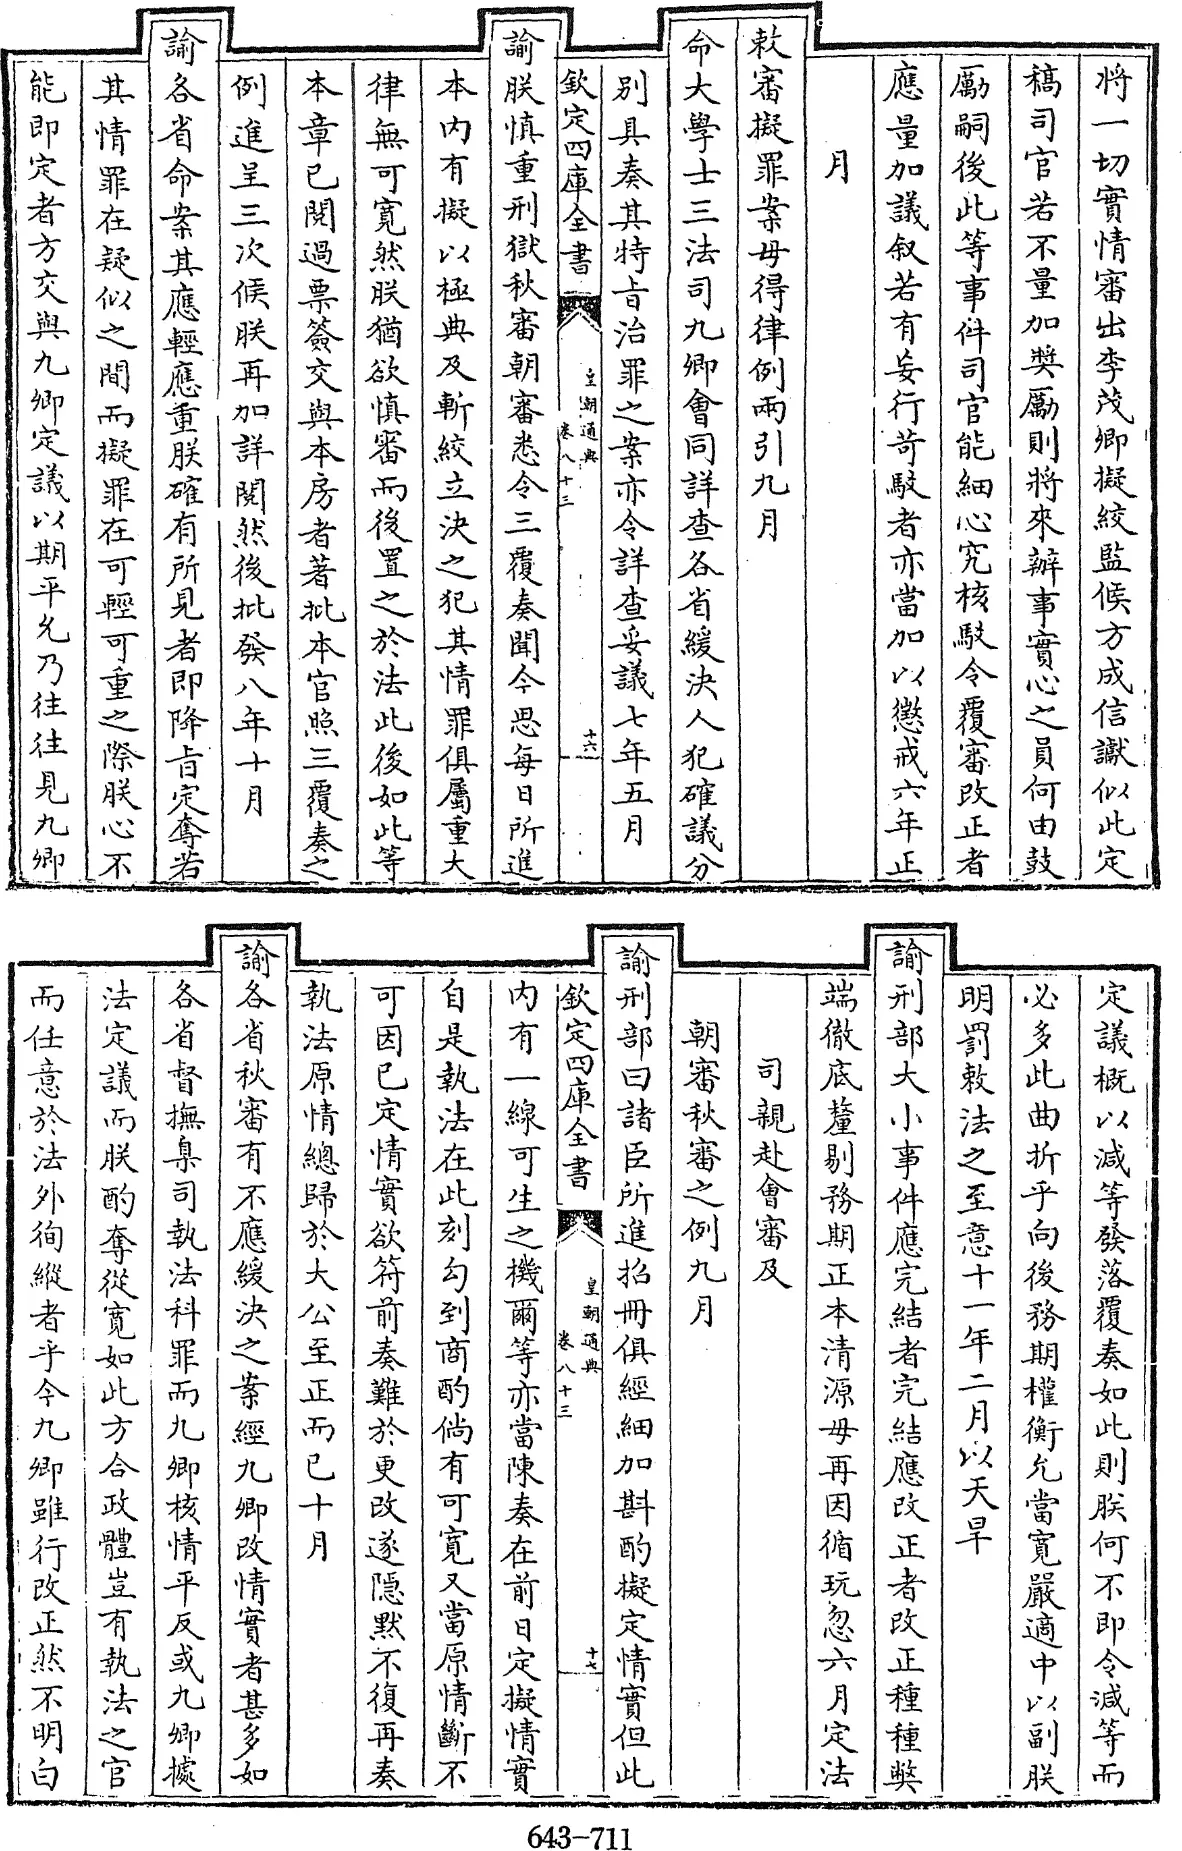 將一切實情審出李茂卿擬絞監候方成信讞似此定
稿司官若不量加奬勵則將來辦事實心之員何由鼓
勵嗣後此等事件司官能細心究核駮令覆審改正者
應量加議叙若有妄行苛駮者亦當加以懲戒六年正
月
敕審擬罪案毋得律例兩引九月
命大學士三法司九卿會同詳查各省緩決人犯確議分
別具奏其特旨治罪之案亦令詳查妥議七年五月
欽定四庫全書
皇朝通典
卷八十三
十六
諭朕慎重刑獄秋審朝審悉令三覆奏聞今思每日所進
本内有擬以極典及斬絞立決之犯其情罪俱屬重大
律無可寛然朕猶欲慎審而後置之於法此後如此等
本章已閲過票簽交與本房者著批本官照三覆奏之
例進呈三次候朕再加詳閲然後批發八年十月
諭各省命案其應輕應重朕確有所見者即降旨定奪若
其情罪在疑似之間而擬罪在可輕可重之際朕心不
能即定者方交與九卿定議以期平允乃往往見九卿
定議概以減等發落覆奏如此則朕何不即令減等而
必多此曲折乎向後務期權衡允當寛嚴適中以副朕
明罰敕法之至意十一年二月以天旱
諭刑部大小事件應完結者完結應改正者改正種種弊
端徹底釐剔務期正本清源毋再因循玩忽六月定法
司親赴會審及
朝審秋審之例九月
諭刑部曰諸臣所進招冊俱經細加斟酌擬定情實但此
欽定四庫全書
皇朝通典
卷八十三
十七
内有一線可生之機爾等亦當陳奏在前日定擬情實
自是執法在此刻勾到商酌倘有可寛又當原情斷不
可因已定情實欲符前奏難於更改遂隱默不復再奏
執法原情總歸於大公至正而已十月
諭各省秋審有不應緩決之案經九卿改情實者甚多如
各省督撫臬司執法科罪而九卿核情平反或九卿據
法定議而朕酌奪從寛如此方合政體豈有執法之官
而任意於法外徇縱者乎今九卿雖行改正然不明白
643-711